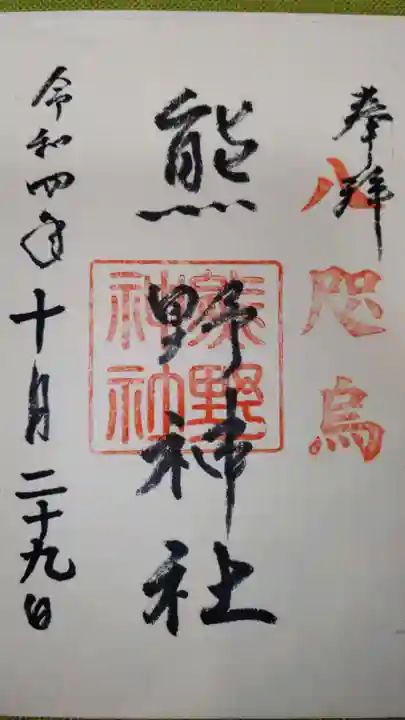 奉拝
八咫烏
熊野神社
熊野神社
令和四年十月二十九日